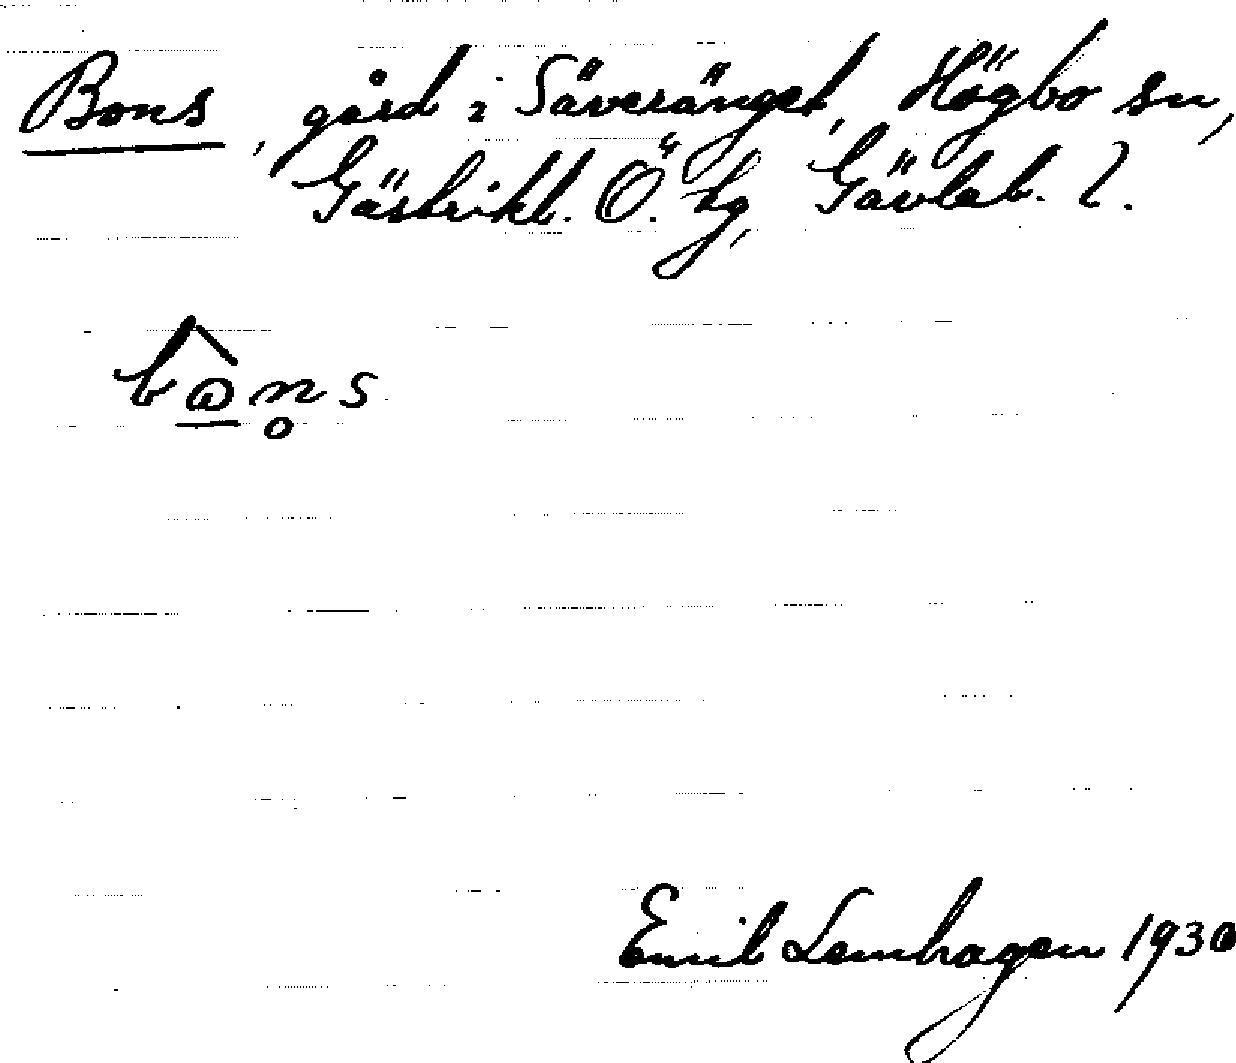 Bons, gård i Säveränget, Högbo sn,
Gästrikl. Ö. hg, Gävleb. l.
Emil Lemhagen 1930